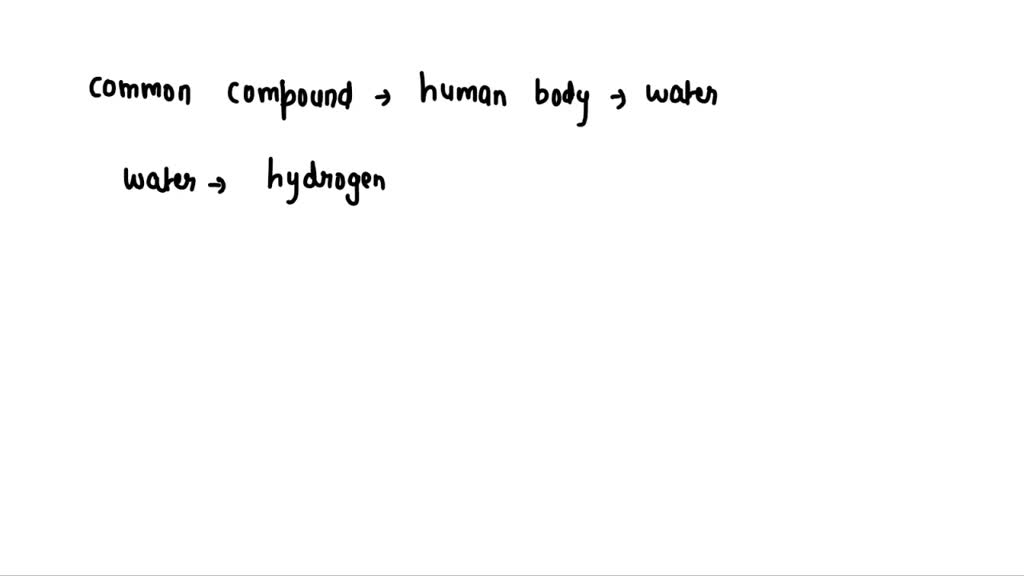 common compound → human body → water
water → hydrogen